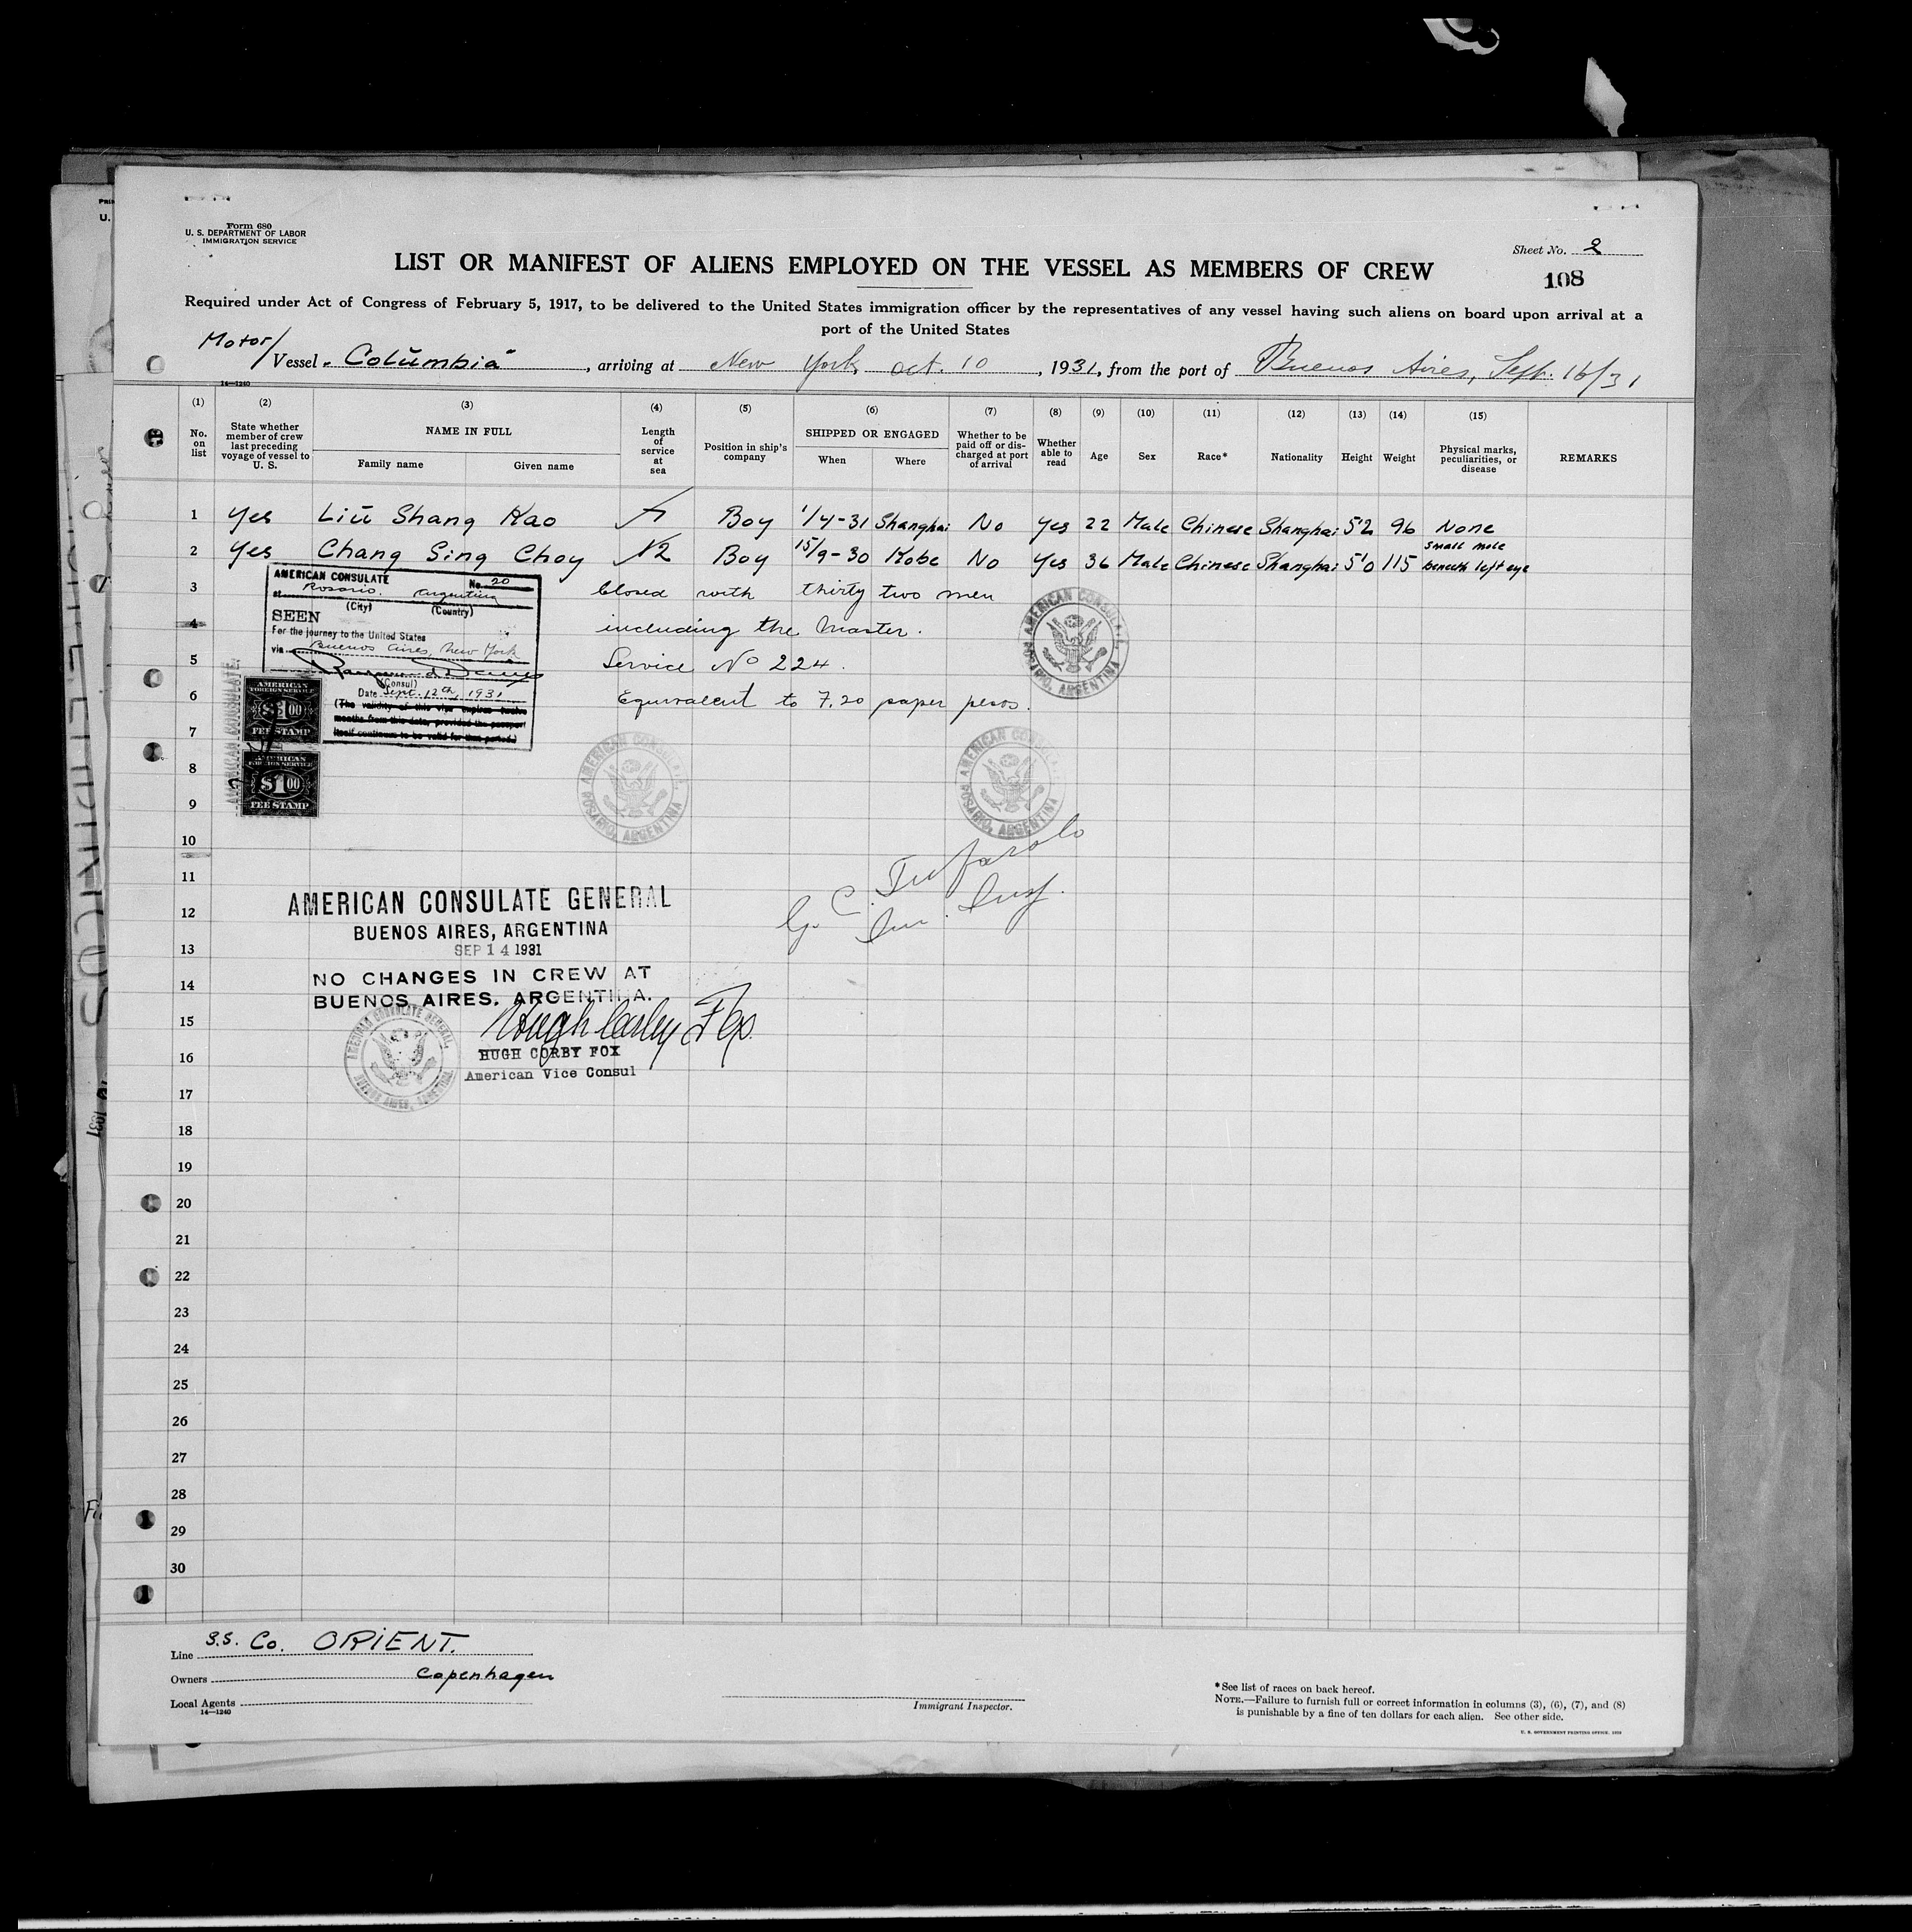 Form 680
U. S. DEPARTMENT OF LABOR
IMMIGRATION SERVICE
Sheet No. 2
LIST OR MANIFEST OF ALIENS EMPLOYED ON THE VESSEL AS MEMBERS OF CREW
108
Required under Act of Congress of February 5, 1917, to be delivered to the United States immigration officer by the representatives of any vessel having such aliens on board upon arrival at a
port of the United States
Motor/Vessel "Columbia", arriving at New York, Oct. 10, 1931, from the port of Buenos Aires, Sept. 16/31
14—1240
(1) (2) (3) (4) (5) (6) (7) (8) (9) (10) (11) (12) (13) (14) (15)
No. on list
State whether member of crew last preceding voyage of vessel to U. S.
NAME IN FULL
Family name Given name
Length of service at sea
Position in ship's company
SHIPPED OR ENGAGED
When Where
Whether to be paid off or discharged at port of arrival
Whether able to read
Age
Sex
Race*
Nationality
Height
Weight
Physical marks, peculiarities, or disease
REMARKS
1 Yes Liū Shang Kao Boy 1/4-31 Shanghai No Yes 22 Male Chinese Shanghai 5'2 96 None
2 Yes Chang Sing Choy Boy 15/9-30 Kobe No Yes 36 Male Chinese Shanghai 5'0 115 Small mole beneath left eye
3 Closed with thirty two men
4 including the Master.
5 Service No 224.
6 Equivalent to 7.20 paper pesos.
AMERICAN CONSULATE
No. 20
at Rosario, Argentina
(City) (Country)
SEEN
For the journey to the United States
via Buenos Aires, New York
(Consul)
Date Sept. 12th, 1931
(The validity of this visa expires twelve
months from this date, provided the passport
itself continues to be valid for that period.)
AMERICAN CONSULATE
AMERICAN FOREIGN SERVICE
$1.00
FEE STAMP
AMERICAN FOREIGN SERVICE
$1.00
FEE STAMP
AMERICAN CONSULATE, ROSARIO, ARGENTINA
AMERICAN CONSULATE, ROSARIO, ARGENTINA
AMERICAN CONSULATE, ROSARIO, ARGENTINA
7
8
9
10
11
12
13
14
15
16
17
18
19
20
21
22
23
24
25
26
27
28
29
30
AMERICAN CONSULATE GENERAL
BUENOS AIRES, ARGENTINA
SEP 14 1931
NO CHANGES IN CREW AT
BUENOS AIRES, ARGENTINA.
Hugh Corby Fox
HUGH CORBY FOX
American Vice Consul
AMERICAN CONSULATE GENERAL, BUENOS AIRES, ARGENTINA
Line S.S. Co. ORIENT.
Owners Copenhagen
Local Agents
14—1240
Immigrant Inspector.
*See list of races on back hereof.
NOTE.—Failure to furnish full or correct information in columns (3), (6), (7), and (8)
is punishable by a fine of ten dollars for each alien. See other side.
U. S. GOVERNMENT PRINTING OFFICE